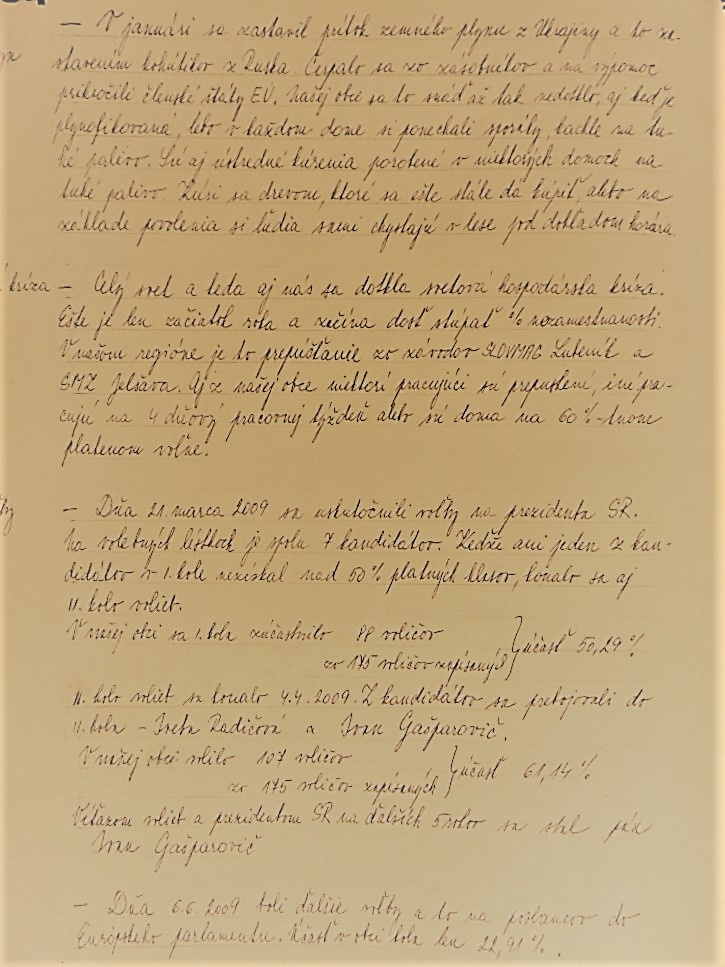 – V januári sa zastavil prítok zemného plynu z Ukrajiny a to za-
stavením kohútikov z Ruska. Čerpalo sa zo zásobníkov a na výpomoc
prikročili členské štáty EÚ. Našej obci sa to snáď až tak nedotklo, aj keď je
plynofikovaná, lebo v každom dome si ponechali sporáky, kachle na tu-
hé palivo. Sú aj ústredné kúrenia porobené v niektorých domoch na
tuhé palivo. Kúri sa drevom, ktoré sa ešte stále dá kúpiť, alebo na
základe povolenia si ľudia sami chystajú v lese pod dohľadom horára.
kríza – Celý svet a teda aj nás sa dotkla svetová hospodárska kríza.
Ešte je len začiatok roka a začína dosť stúpať % nezamestnanosti.
V našom regióne je to prepúšťanie zo závodov SLOVMAG Lubeník a
SMZ Jelšava. Aj z našej obce niektorí pracujúci sú prepustené, iné pra-
cujú na 4 dňový pracovnej týždeň alebo sú doma na 60 %-tnom
platenom voľne.
– Dňa 21. marca 2009 sa uskutočnili voľby na prezidenta SR.
Na volebných lístkoch je spolu 7 kandidátov. Keďže ani jeden z kan-
didátov v I. kole nezískal nad 50 % platných hlasov, konalo sa aj
II. kolo volieb.
V našej obci sa I. kola zúčastnilo 88 voličov
zo 175 voličov zapísaných } účasť 50,29 %
II. kolo volieb sa konalo 4.4.2009. Z kandidátov sa prebojovali do
II. kola – Iveta Radičová a Ivan Gašparovič.
V našej obci volilo 107 voličov
zo 175 voličov zapísaných } účasť 61,14 %
Víťazom volieb a prezidentom SR na ďalších 5 rokov sa stal pán
Ivan Gašparovič
– Dňa 6.6.2009 boli ďalšie voľby a to na poslancov do
Európskeho parlamentu. Účasť v obci bola len 22,91 %.